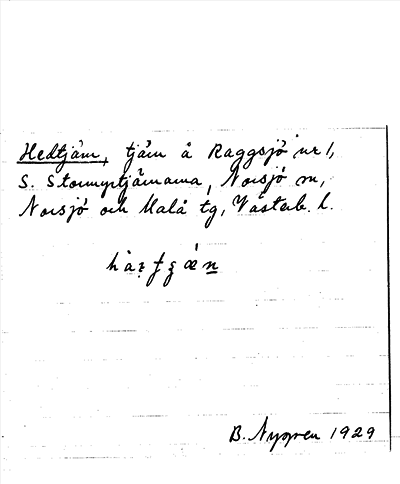 Hedtjärn, tjärn å Raggsjö nr 1,
S. Stormyrtjärnarna, Norsjö sn,
Norsjö och Malå tg, Västerb. l.
B. Nygren 1929